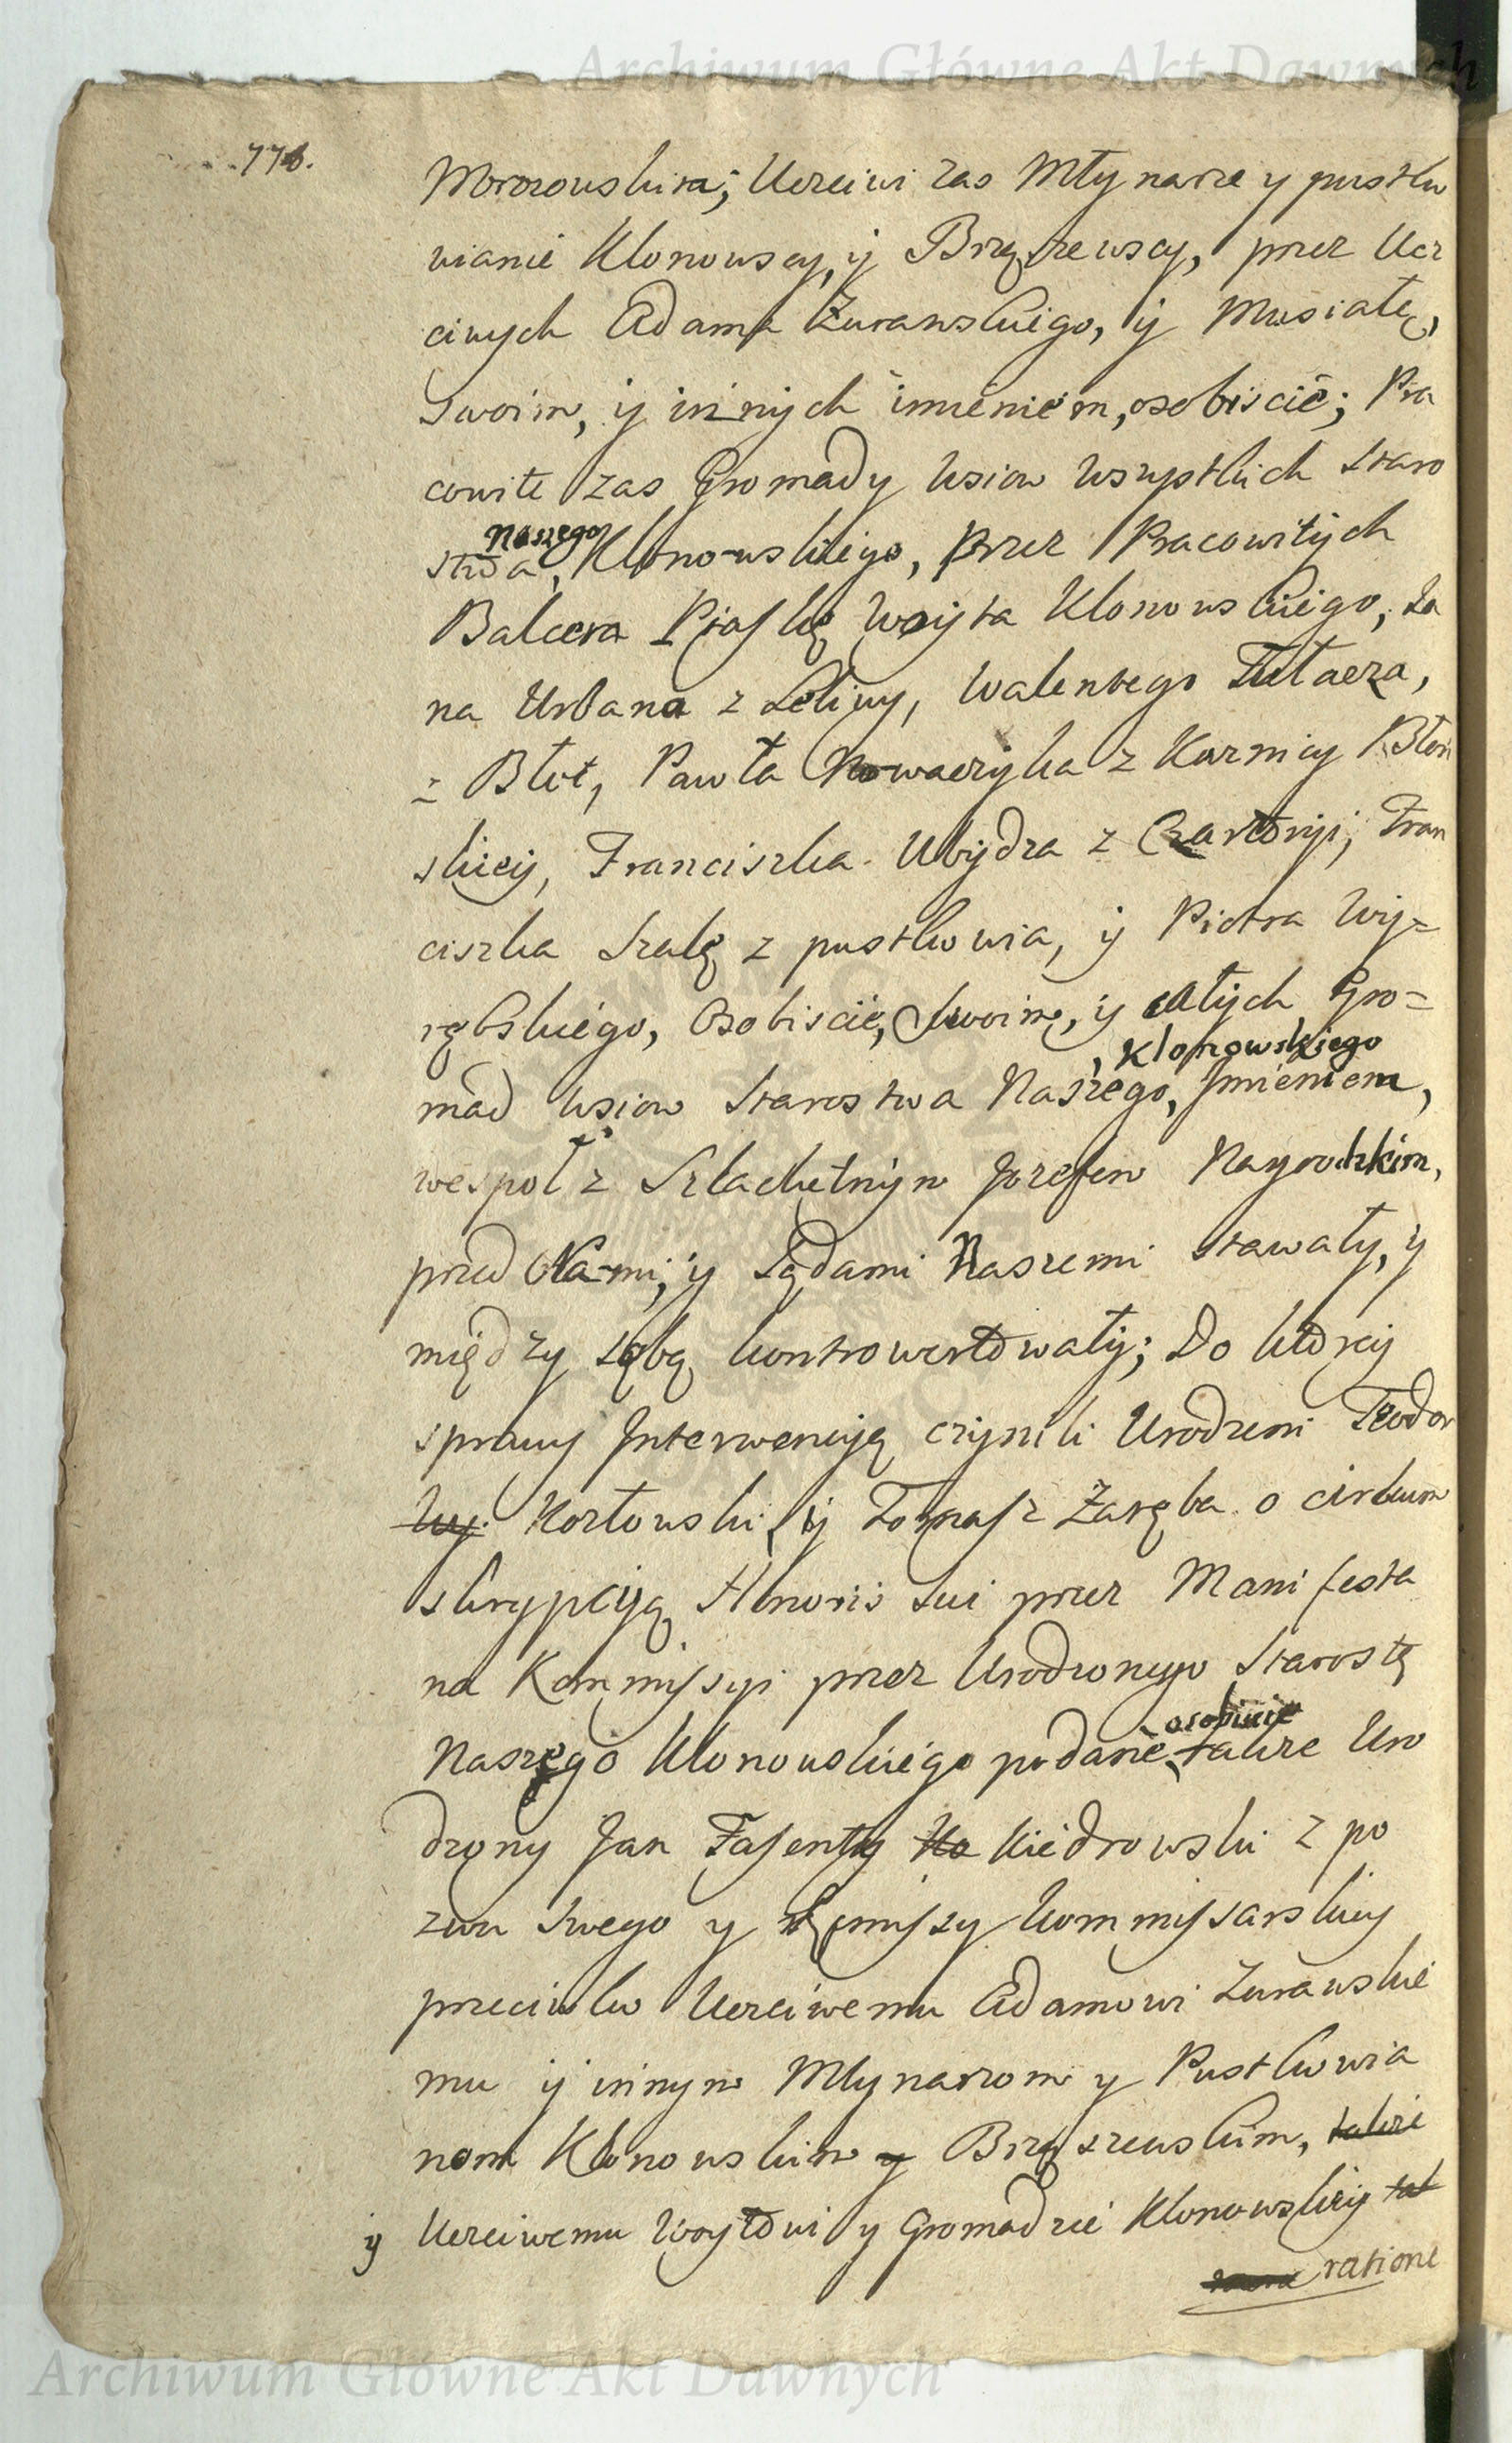 Archiwum Główne Akt Dawnych
776.
Morozowskim; Uczciwi zas Młynarze y pustko
wianie Klonowscy, ÿ Brzęszewscy, przez Ucz
ciwych Adama Żurawskiego, ÿ Musiałę,
Swoim, ÿ innÿch imieniem, osobiscie; Pra
cowite zas Gromady Wsiow Wszystkich Staro
Naszego
stwa, Klonowskiego, przez Pracowitÿch
Balcera Woÿta Klonowskiego, Ja
na Urbana z Leliwy, Walentego Tułacza,
z Błot, Pawła Nowaczÿka z Kuznicy Błon
skieÿ, Franciszka Ubÿdza z Czartorÿi, Fran
ciszka Szalę z pustkowia, ÿ Piotra Wÿ=
rębskiego, Osobiscie, Swoim, ÿ całÿch Gro=
, Klonowskiego
mad Wsiow Starostwa Naszego, Jmieniem,
wespoł z Szlachetnÿm Jozefem Nagrodzkim,
przed Nami, ÿ Sądami Naszemi stawały, ÿ
między sobą kontrowertowałÿ; Do ktorey
sprawy Jnterwencyją czÿnili Urodzeni Teodor
Kozłowski, ÿ Tomasz Zaręba o cirkum
skrypcÿją Honoris sui przez Manifesta
na Kommissÿi przez Urodzonego Starostę
osobiscie
Naszego Klonowskiego podane, takze Uro
dzony Jan Fasenty Ko Kiedrowski z po
zwu swego y Remissy Kommissarskiey
przeciwko Uczciwemu Adamowi Zurawskie
mu ÿ innym Młynarzom y Pustkowia
nom Klonowskim y Brzęszewskim, takze
ÿ Uczciwemu Woytowi y Gromadzie Klonowskieÿ tak
ratione
Archiwum Główne Akt Dawnych